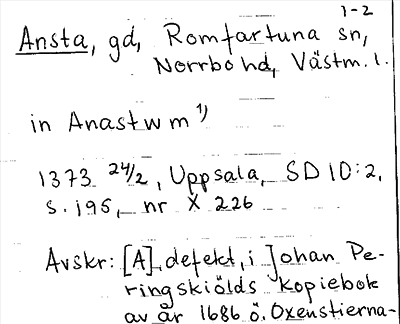 1-2
Ansta, gd, Romfartuna sn,
Norrbo hd, Västm. l.
in Anastwm 1)
1373 24/2, Uppsala, SD 10:2,
s. 195, nr X 226
Avskr: [A], defekt, i Johan Pe-
ringskiölds kopiebok
av år 1686 ö. Oxenstierna-